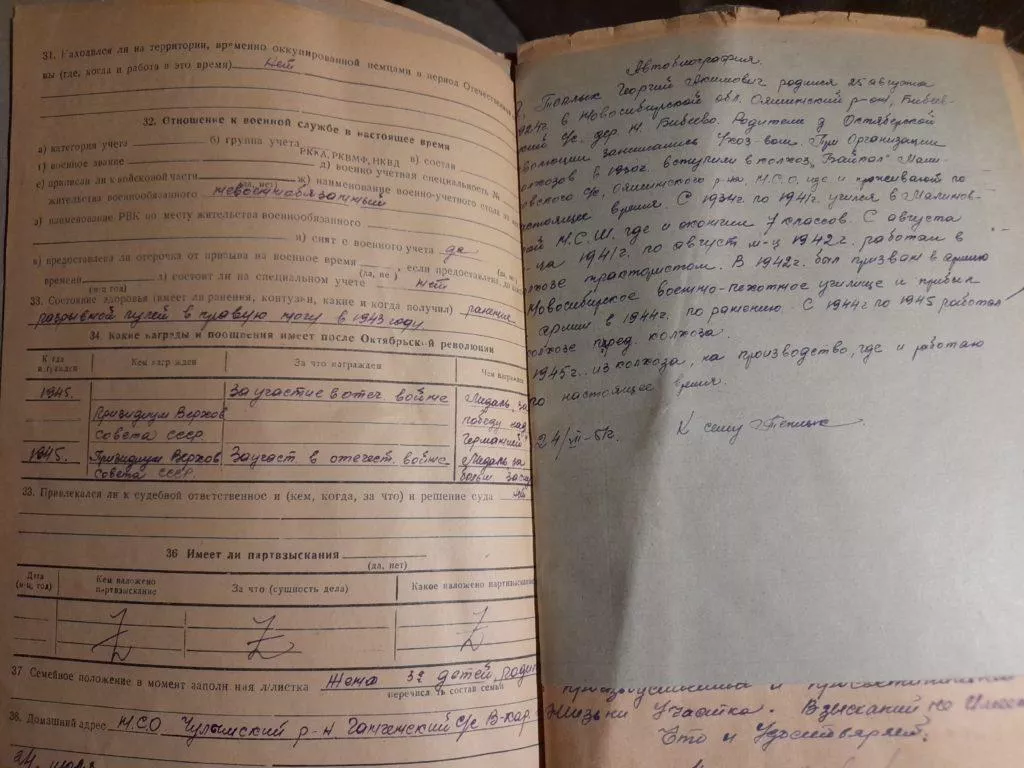 31. Находился ли на территории, временно оккупированной немцами в период Отечественной
вы (где, когда и работа в это время) нет
32. Отношение к военной службе в настоящее время
а) категория учета б) группа учета в) состав
РККА, РКВМФ, НКВД
г) военное звание д) военно учетная специальность №
е) приписан ли к войсковой части ж) наименование военно-учетного стола по
(да, нет)
жительства военнообязанного невоеннообязанный
з) наименование РВК по месту жительства военнообязанного
и) снят с военного учета да
к) предоставлена ли отсрочка от призыва на военное время , если предоставлена, до какого
(да, не) (да, не)
времени л) состоит ли на специальном учете нет
(м-ц год)
33. Состояние здоровья (имеет ли ранения, контузии, какие и когда получил) ранение
разрывной пулей в правую ногу в 1943 году
34 Какие награды и поощрения имеет после Октябрьской революции
Когда награжден Кем награжден За что награжден Чем награжден
1945. За участие в отеч. войне Медаль „за
Призидиум Верхов победу над
совета СССР. Германией"
1945. Призидиум Верхов За участ. в отечест. войне Медаль за
совета СССР.
35. Привлекался ли к судебной ответственное и (кем, когда, за что) и решение суда
36 Имеет ли партвзыскания
(да, нет)
Дата (м-ц, год) Кем наложено партвзыскание За что (сущность дела) Какое наложено партвзыскание
Z Z Z
37 Семейное положение в момент заполн ния л/листка Жена 3е детей,
перечисл ть состав семьи
38. Домашний адрес Н.С.О Чулымский р-н с/с В-кар
24 июля
Автобиография.
Я, Теплых Георгий Акимович родился 25 августа
1924г. в Новосибирской обл. Ояшинский р-он, Бибеев-
ский с/с. дер. Н. Бибеево. Родители до Октябрьской
революции занимались с/хоз-вом. При Организации
колхозов в 1930г. вступили в колхоз „Байкал" Мали-
новского с/с, Ояшинского р-на, Н.С.О, где и проживают по
настоящее время. С 1934г по 1941г. учился в Малинов-
ской Н.С.Ш. где и окончил 7 классов. С августа
м-ца 1941г. по август м-ц 1942г. работал в
колхозе трактористом. В 1942г. был призван в армию
Новосибирское военно-пехотное училище и прибыл
армии в 1944г. по ранению. С 1944г по 1945 работал
колхозе пред. колхоза.
1945г. из колхоза, на производство, где и работаю
по настоящее время.
24/VII-51г. К сему Теплых
жизни Участка. Взысканий не имеет
Что и Удостоверяем.